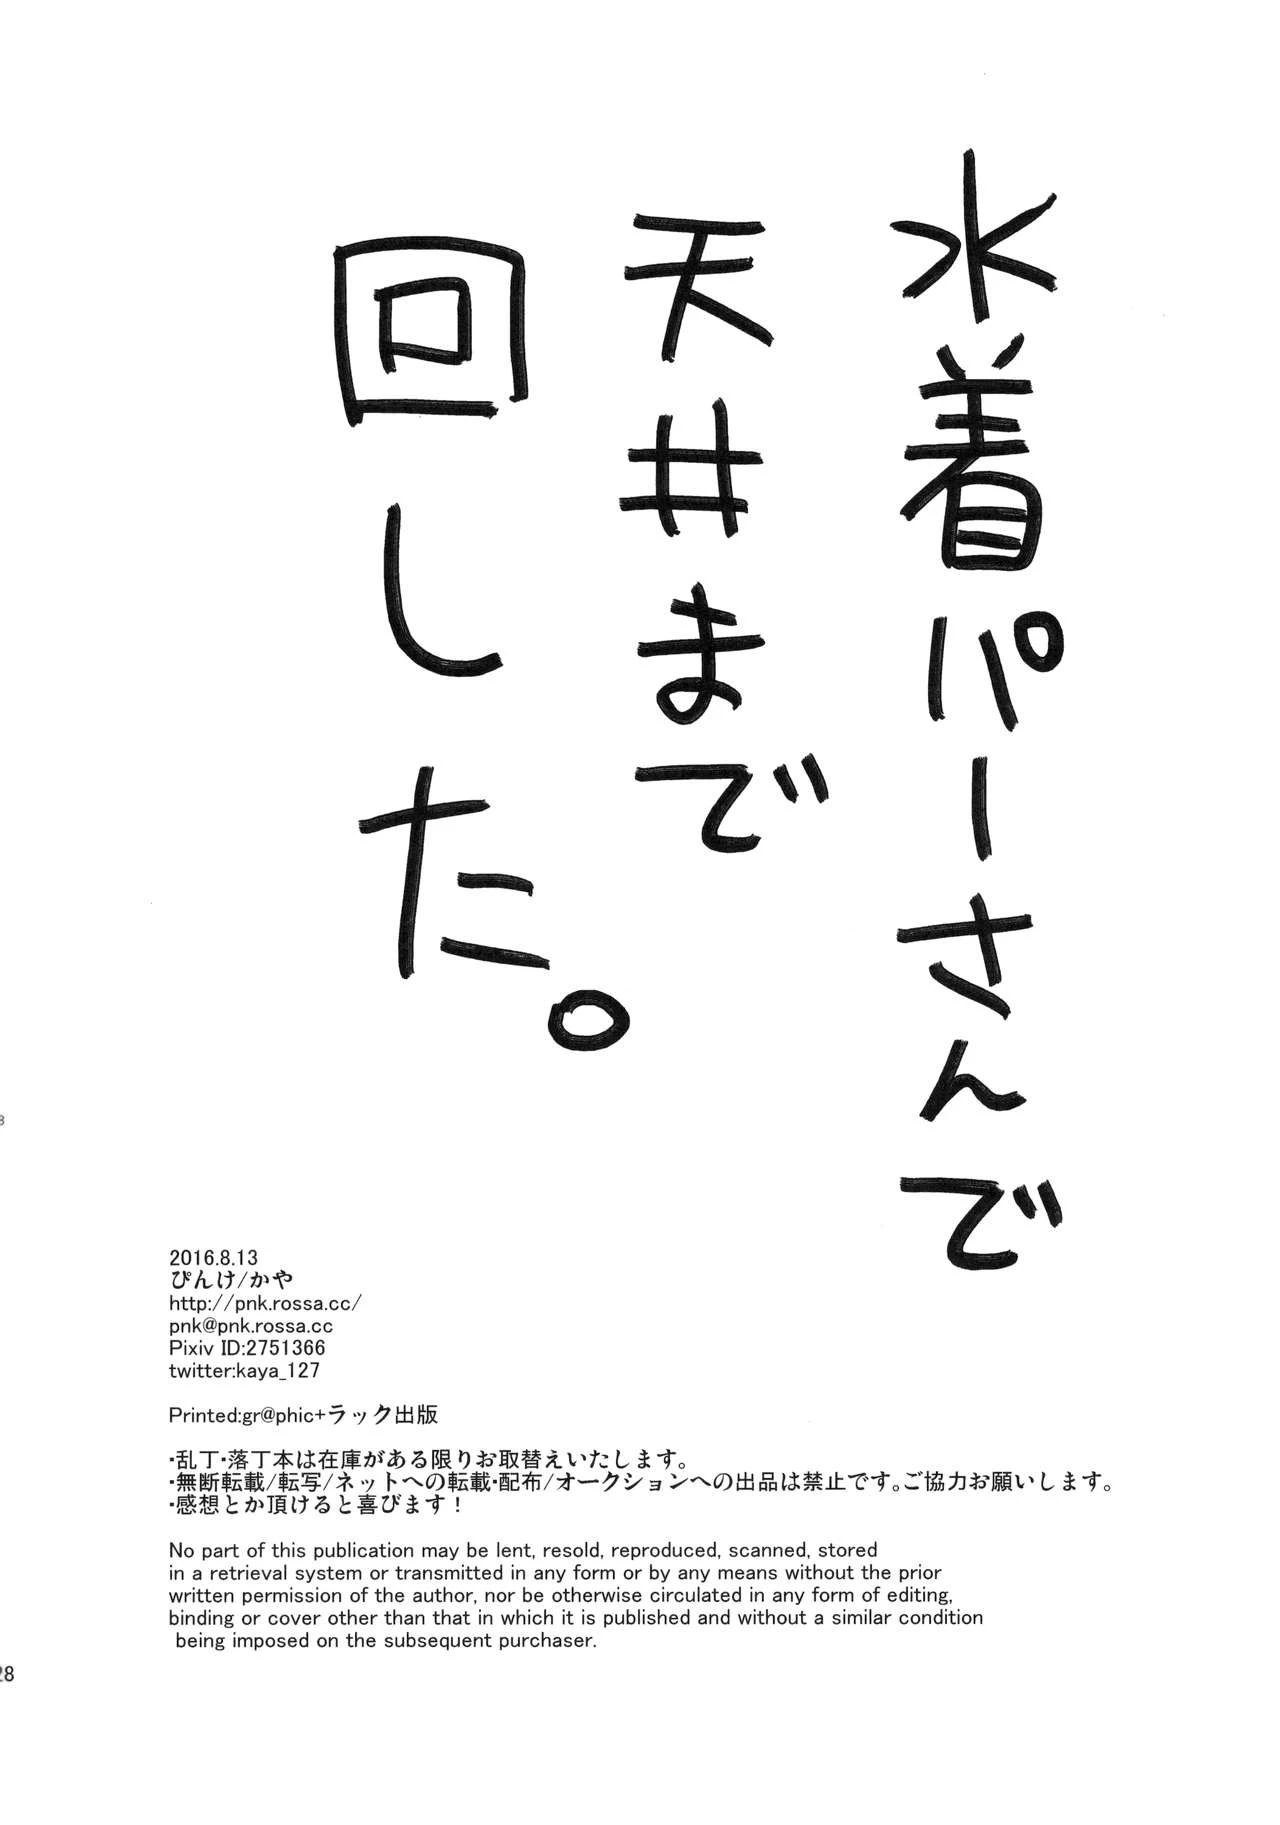 水着パーさんで
天井まで
回した。
2016.8.13
ぴんけ/かや
http://pnk.rossa.cc/
pnk@pnk.rossa.cc
Pixiv ID:2751366
twitter:kaya_127
Printed:gr@phic+ラック出版
・乱丁・落丁本は在庫がある限りお取替えいたします。
・無断転載/転写/ネットへの転載・配布/オークションへの出品は禁止です。ご協力お願いします。
・感想とか頂けると喜びます！
No part of this publication may be lent, resold, reproduced, scanned, stored
in a retrieval system or transmitted in any form or by any means without the prior
written permission of the author, nor be otherwise circulated in any form of editing,
binding or cover other than that in which it is published and without a similar condition
being imposed on the subsequent purchaser.
28